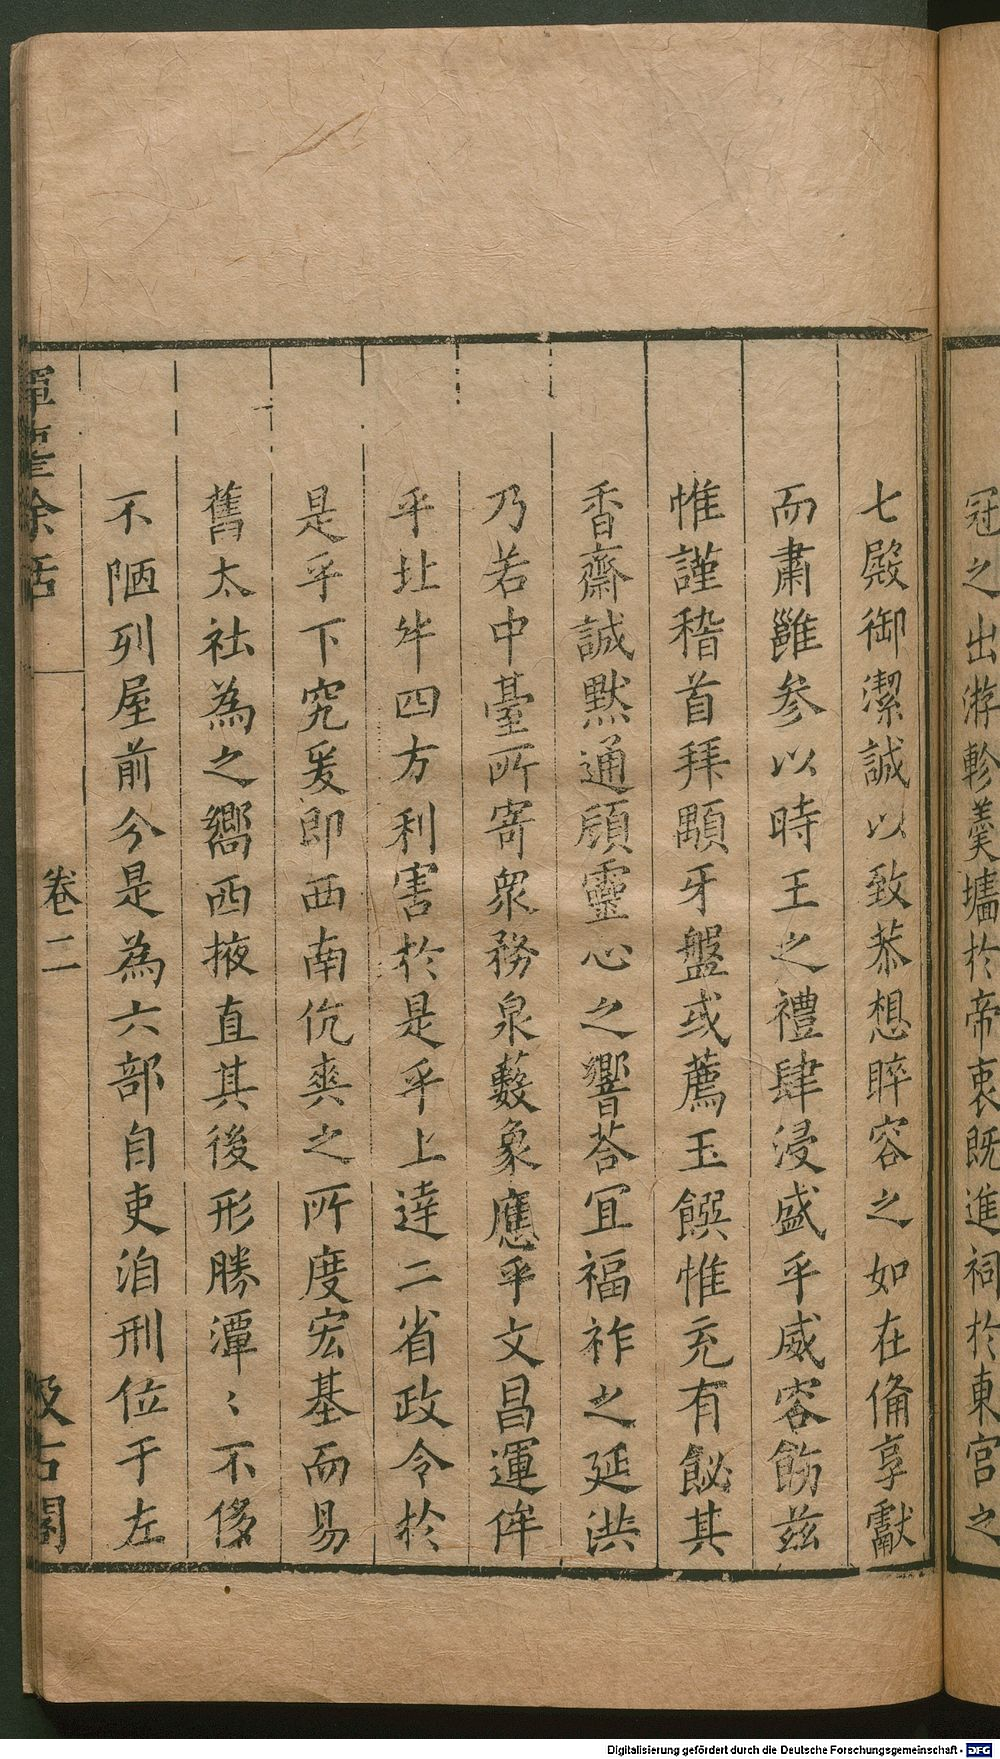 冠之出游軫羹墻於帝衷既進祠於東宫之
七殿御潔誠以致恭想睟容之如在俻享獻
而肅雝参以時王之禮肆浸盛乎威容飭兹
惟謹稽首拜顒牙盤或薦玉饌惟充有飶其
香齋誠黙通頋靈心之響荅宜福祚之延洪
乃若中䑓所寄衆務泉藪象應乎文昌運侔
乎北斗四方利害於是乎上達二省政令於
是乎下究爰即西南伉爽之所度宏基而易
舊太社為之嚮西掖直其後形勝潭〻不侈
不陋列屋前分是為六部自吏洎刑位于左
卷二
汲古閣
Digitalisierung gefördert durch die Deutsche Forschungsgemeinschaft - DFG